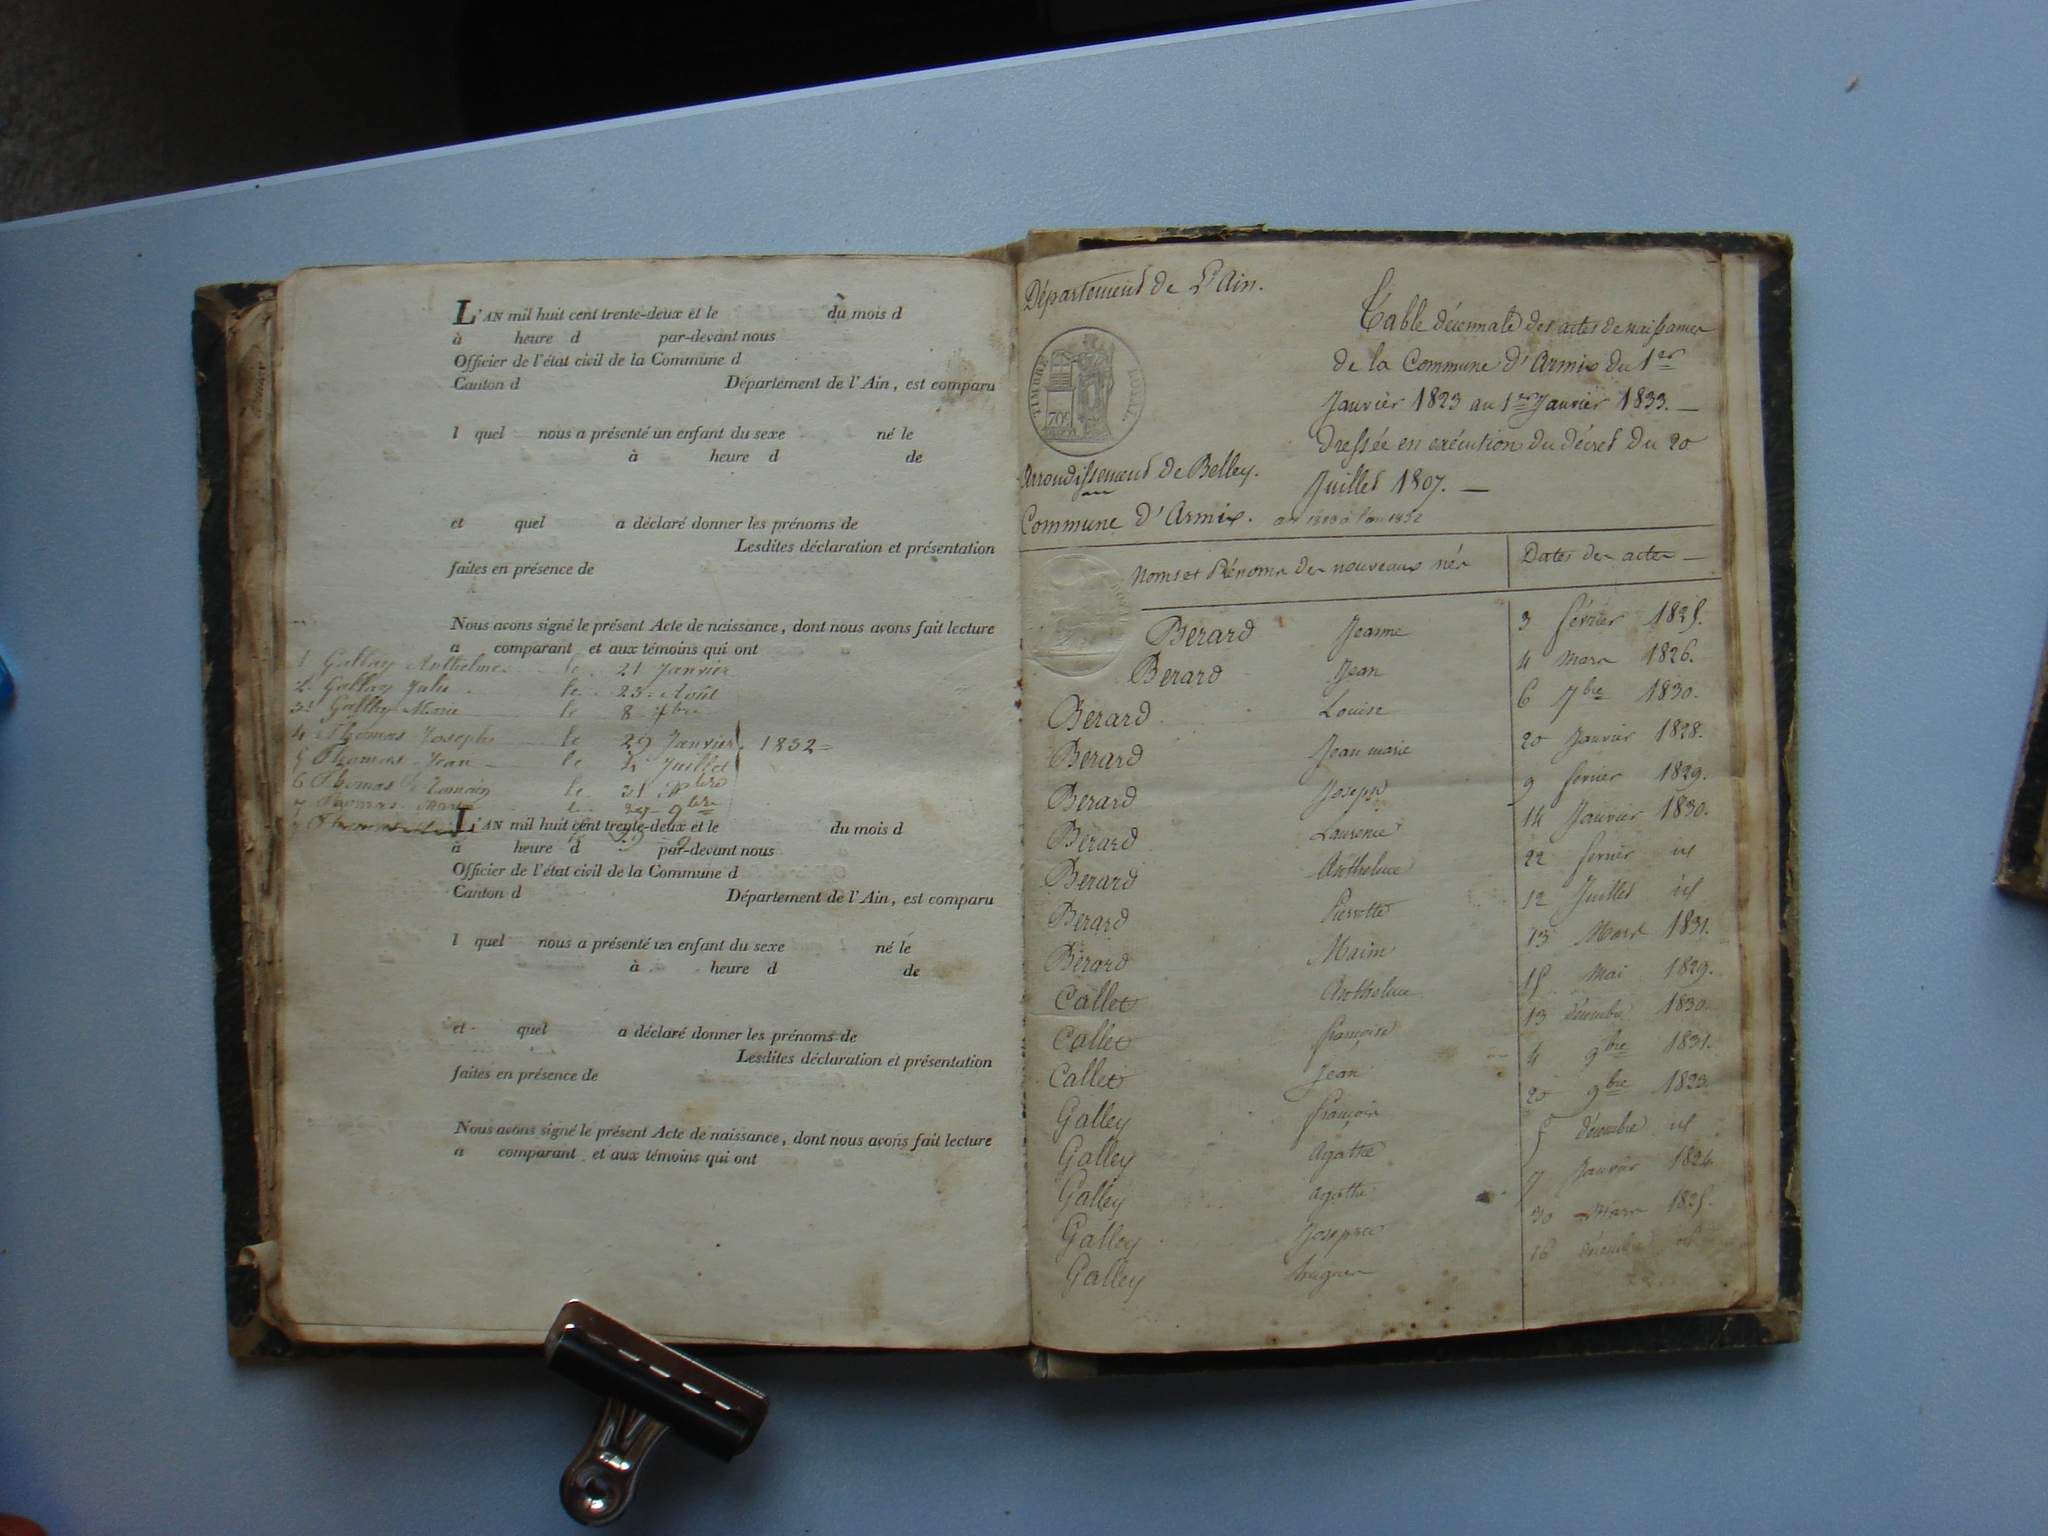 L'AN mil huit cent trente-deux et le du mois d
à heure d par-devant nous
Officier de l'état civil de la Commune d
Canton d Département de l'Ain, est comparu
l quel nous a présenté un enfant du sexe né le
à heure d de
et quel a déclaré donner les prénoms de
Lesdites déclaration et présentation
faites en présence de
Nous avons signé le présent Acte de naissance, dont nous avons fait lecture
a comparant et aux témoins qui ont
1 Gallay Anthelme le 21 Janvier
2. Gallay Julie le 23 Août
3 Gallay Marie le 8 7bre
4 Thomas Joseph le 29 Janvier 1832
5 Thomas Jean le 4 Juillet
6 Thomas Romain le 21
7 Thomas Marie le 29 9bre
L'AN mil huit cent trente-deux et le du mois d
à heure d par-devant nous
Officier de l'état civil de la Commune d
Canton d Département de l'Ain, est comparu
l quel nous a présenté un enfant du sexe né le
à heure d de
et quel a déclaré donner les prénoms de
Lesdites déclaration et présentation
faites en présence de
Nous avons signé le présent Acte de naissance, dont nous avons fait lecture
a comparant et aux témoins qui ont
Département de L'Ain.
TIMBRE ROYAL
70c
Arrondissement de Belley.
Commune d'Armix. an 1823 à l'an 1832
Table décennale des actes de naissances
de la Commune d'Armix du 1er
Janvier 1823 au 1er Janvier 1833. —
Dressée en exécution du décret du 20
Juillet 1807. —
Noms et Prénoms des nouveaux nés Dates des actes
Berard Jeanne 3 février 1825.
Berard Jean 4 mars 1826.
Berard Louise 6 7bre 1830.
Berard Jean marie 20 Janvier 1828.
Berard Joseph 9 fevrier 1829.
Berard Laurence 14 Janvier 1830.
Berard Anthelme 22 fevrier id
Berard Pierrotte 12 Juillet id
Berard 13 Mars 1831.
Callet Anthelme 15 Mai 1829.
Callet françoise 13 décembre 1830
Callet Jean 4 9bre 1831.
Galley françois 20 9bre 1823.
Galley Agathe 5 décembre id
Galley agathe 7 Janvier 1824
Galley Josephte 30 Mars 1825.
Galley 16 décembre id